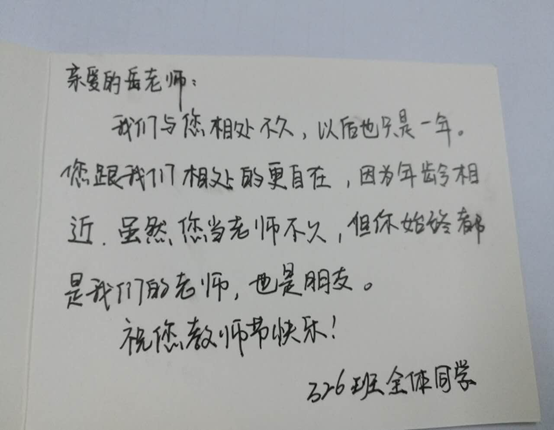 亲爱的岳老师：
我们与您相处不久，以后也只是一年。
您跟我们相处的更自在，因为年龄相
近．虽然您当老师不久，但你始终都
是我们的老师，也是朋友。
祝您教师节快乐！
326班全体同学